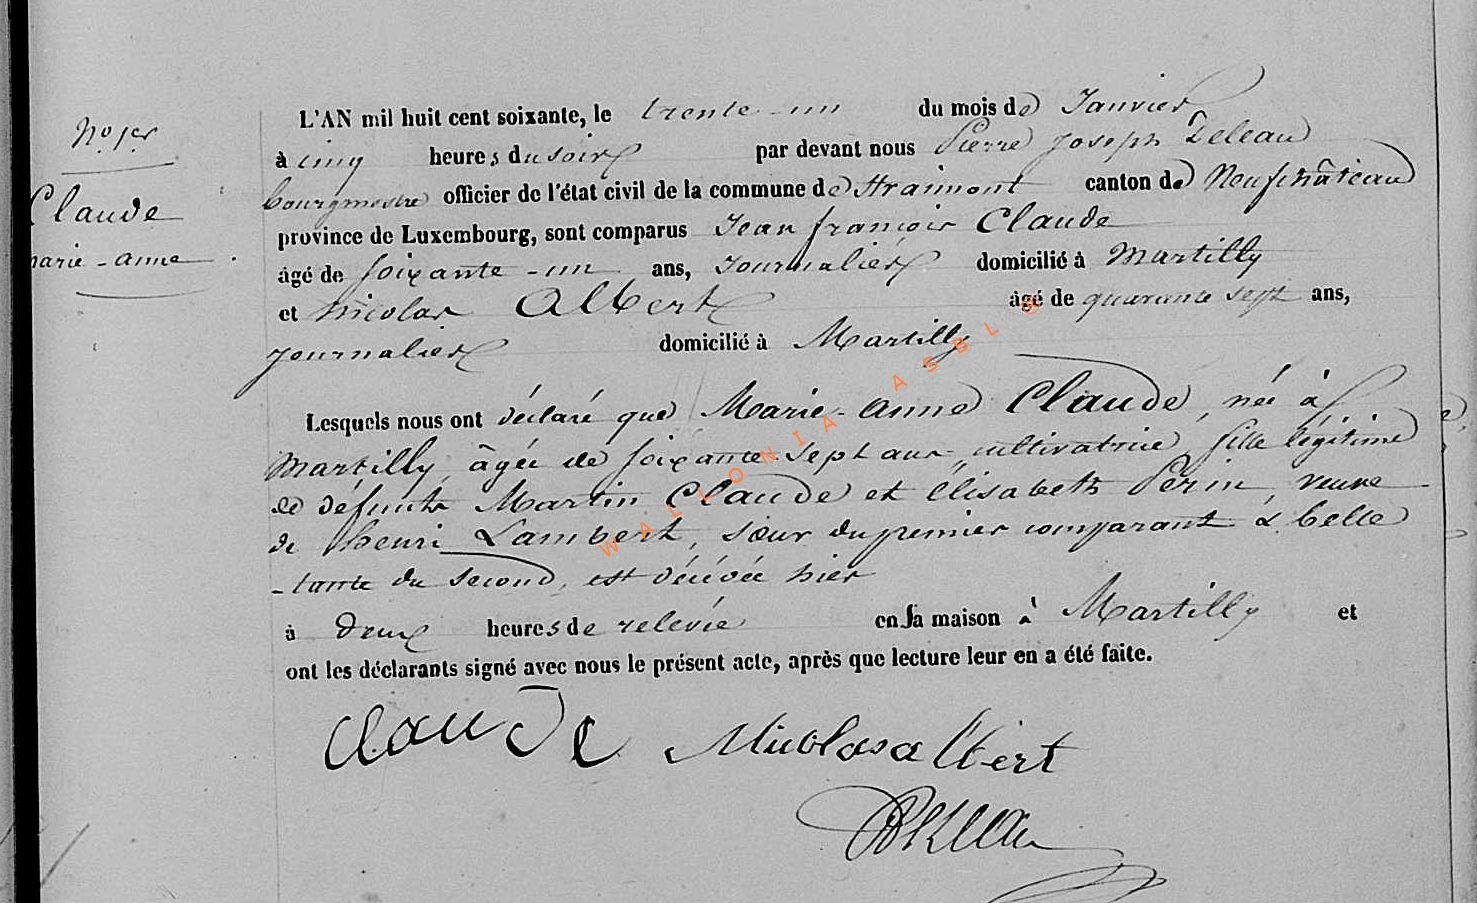 No. 1er
Claude
marie-anne
L'AN mil huit cent soixante, le trente-un du mois de Janvier
à cinq heures du soir par devant nous Pierre Joseph Deleau
bourgmestre officier de l'état civil de la commune de Straimont canton de Neufchâteau
province de Luxembourg, sont comparus Jean françois Claude
âgé de soixante-un ans, Journalier domicilié à Martilly
et Nicolas Albert âgé de quarante sept ans,
Journalier domicilié à Martilly
Lesquels nous ont déclaré que Marie-anne Claude, née à
Martilly, âgée de soixante-sept ans, cultivatrice, fille légitime
de défunts Martin Claude et élisabeth Périn, veuve
de henri Lambert, sœur du premier comparant & belle
-tante du second, est décédée hier
à deux heures de relevée en sa maison à Martilly et
ont les déclarants signé avec nous le présent acte, après que lecture leur en a été faite.
Claude Nicolas albert
WALLONIA ASBL